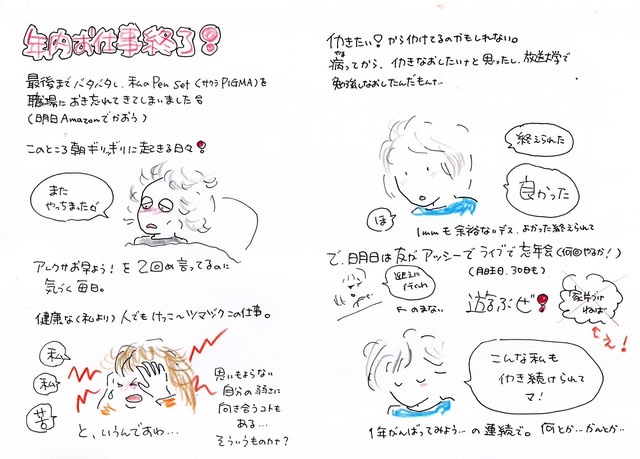 年内お仕事終了!
最後までバタバタし、私のPen Set (サクラPIGMA)を
職場におき忘れてきてしまいました
(明日Amazonでかおう)
このところ朝ギリッギリに起きる日々!
また
やっちまった
アレクサお早よう!を2回め言ってるのに
気づく毎日。
健康な(私より)人でもけっこ〜ツマヅクこの仕事。
私
私
苦
思いもよらない
自分の弱さに
向き合うコトも
ある…
そういうものカナ?
と、いうんですわ…
働きたい!から働けてるのかもしれない。
病ってから、働きなおしたいナと思ったし、放送大学で
勉強しなおしたんだもんナ…
終えられた
良かった
ほ
1mmも余裕ないデス。よかった終えられて
で、明日は友がアッシーでライブで忘年会(何回やるか!)
(月曜日、30日も)
迎えに
行くわ
のまない
遊ぶぜ!
家片づけ
ねば
てぇ!
こんな私も
働き続けられて
マ!
1年がんばってみよう…の連続で。何とか…かんとか…